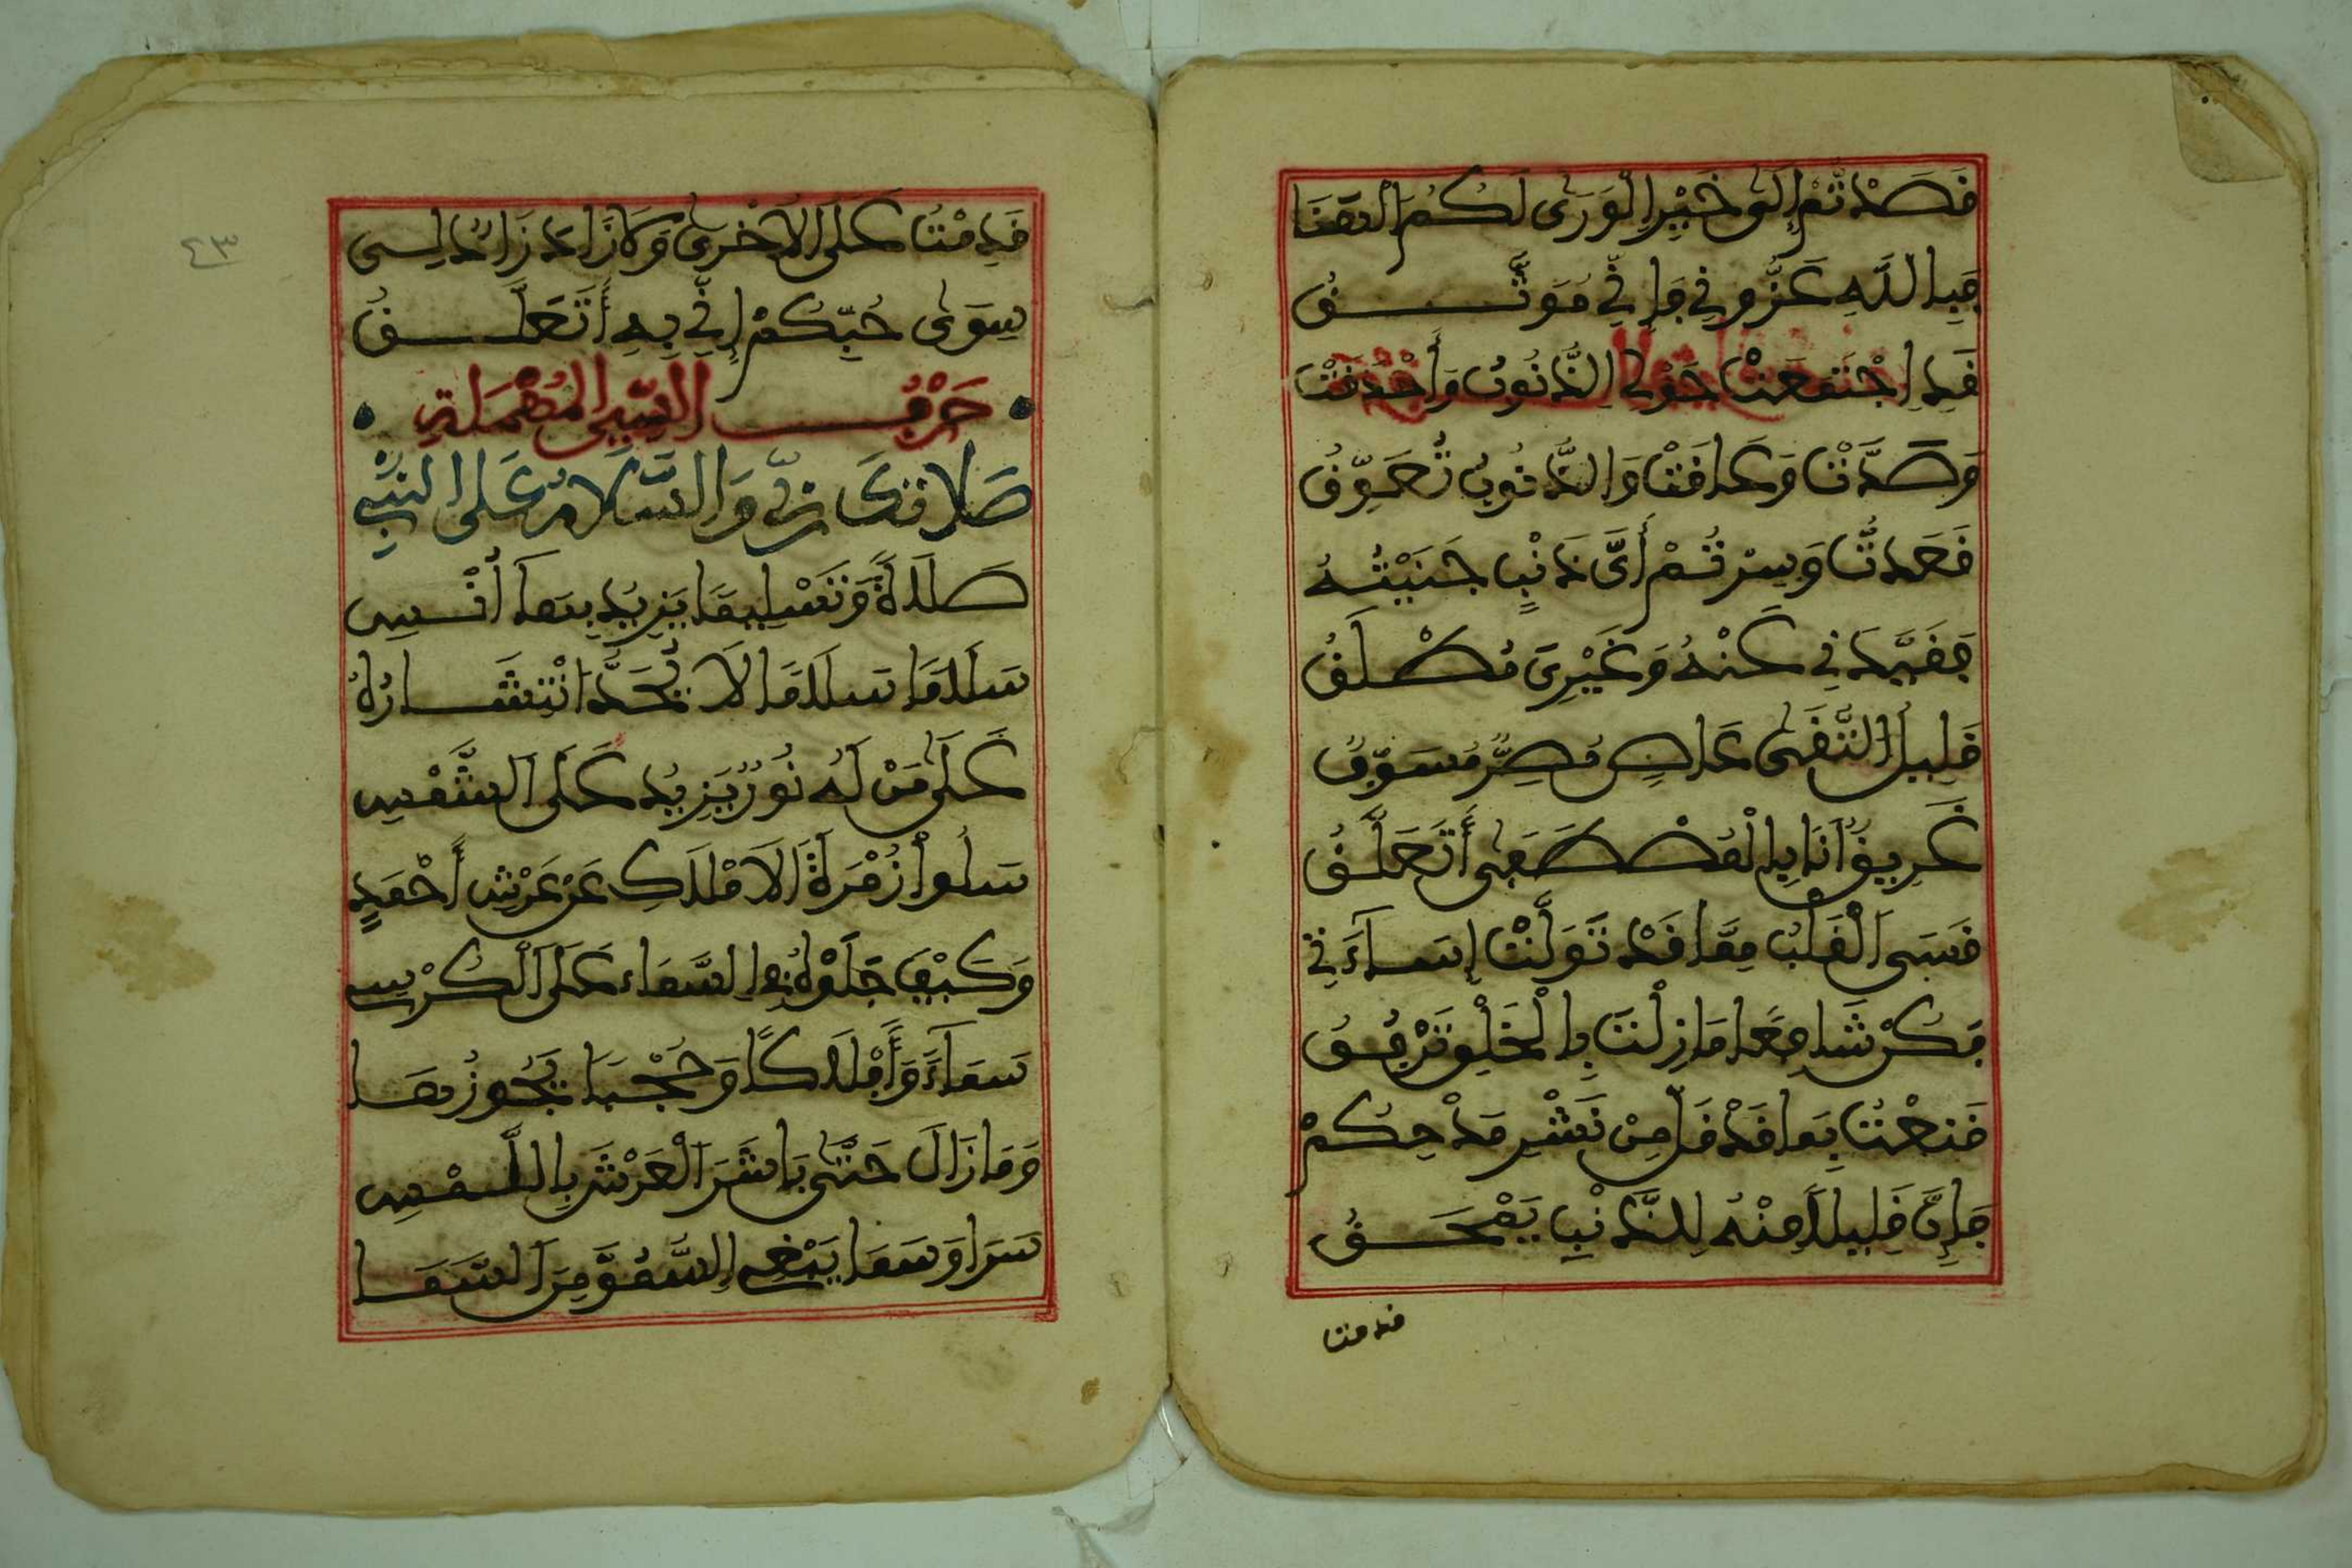 قَصَدْتُمْ إِلَى خَيْرِ الْوَرَى لَكُمُ الْهَنَا
فَبِاللَّهِ عَزُّونِي فَإِنِّي مُوَثَّقُ
قَدِ اجْتَمَعَتْ حَوْلِي الذُّنُوبُ وَأَحْدَقَتْ
وَصَدَّتْ وَعَاقَتْ وَالذُّنُوبُ تُعَوِّقُ
قَعَدتُّ وَسِرْتُمْ أَيَّ ذَنْبٍ جَنَيْتُهُ
فَقَيَّدَنِي عَنْهُ وَغَيْرِي مُطْلَقُ
قَلِيلُ التُّقَى عَاصٍ مُصِرٌّ مُسَوِّفٌ
غَرِيقٌ أَنَا بِالْمُصْطَفَى أَتَعَلَّقُ
قَسَى الْقَلْبُ مِمَّا قَدْ تَوَلَّتْ إِسَاءَتِي
فَكُنْ شَافِعًا مَا زِلْتَ بِالْخَلْقِ تَرْفُقُ
قَنِعْتُ بِمَا قَدْ قَلَّ مِنْ نَشْرِ مَدْحِكُمْ
فَإِنَّ قَلِيلًا مِنْهُ لِلذَّنْبِ يَمْحَقُ
قدمت
قَدِمْتُ عَلَى الْأُخْرَى وَمَا زَادَ زَائِدٌ لِي
سِوَى حُبِّكُمْ إِنِّي بِهِ أَتَعَلَّقُ
حَرْفُ السِّينِ الْمُهْمَلَةِ
صَلَاتُكَ رَبِّي وَالسَّلَامُ عَلَى النَّبِي
صَلَاةً وَتَسْلِيمًا يَزِيدُ بِهَا أُنْسِي
سَلَامًا سَلَامًا لَا يُحَدُّ انْتِشَارُهُ
عَلَى مَنْ لَهُ نُورٌ يَزِيدُ عَلَى الشَّمْسِ
سَلُوا زُمْرَةَ الْأَمْلَاكِ عَنْ عَرْشِ أَحْمَدٍ
وَكَيْفَ جَلَوْهُ فِي السَّمَاءِ عَلَى الْكُرْسِي
سَمَاءً وَأَمْلَاكًا وَحُجْبًا يَجُوزُهَا
وَمَا زَالَ حَتَّى بَاشَرَ الْعَرْشَ بِاللَّمْسِ
سَرَا وَسَمَا يَبْغِي السُّمُوَّ مِنَ السَّمَا
٤٣